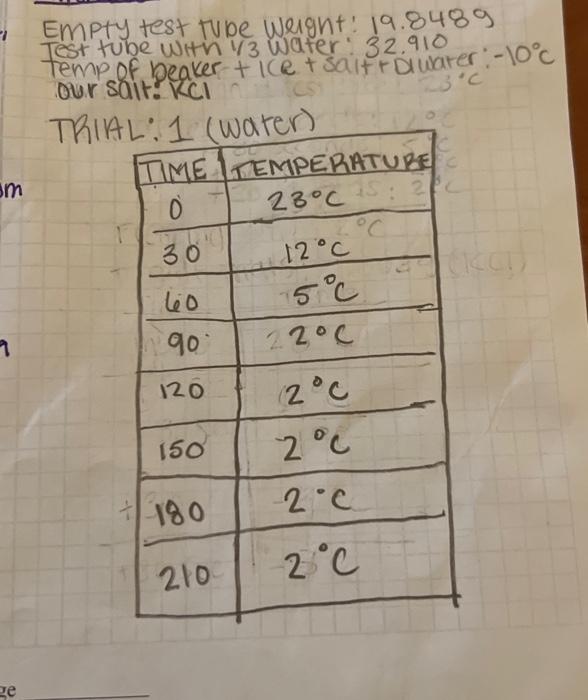 Empty test tube weight: 19.848g
Test tube with 1/3 water: 32.910
Temp of beaker + ice + salt + DI water: -10°C
our salt: KCl
TRIAL: 1 (water)
TIME TEMPERATURE
0 23°C
30 12°C
60 5°C
90 2°C
120 2°C
150 2°C
180 2°C
210 2°C